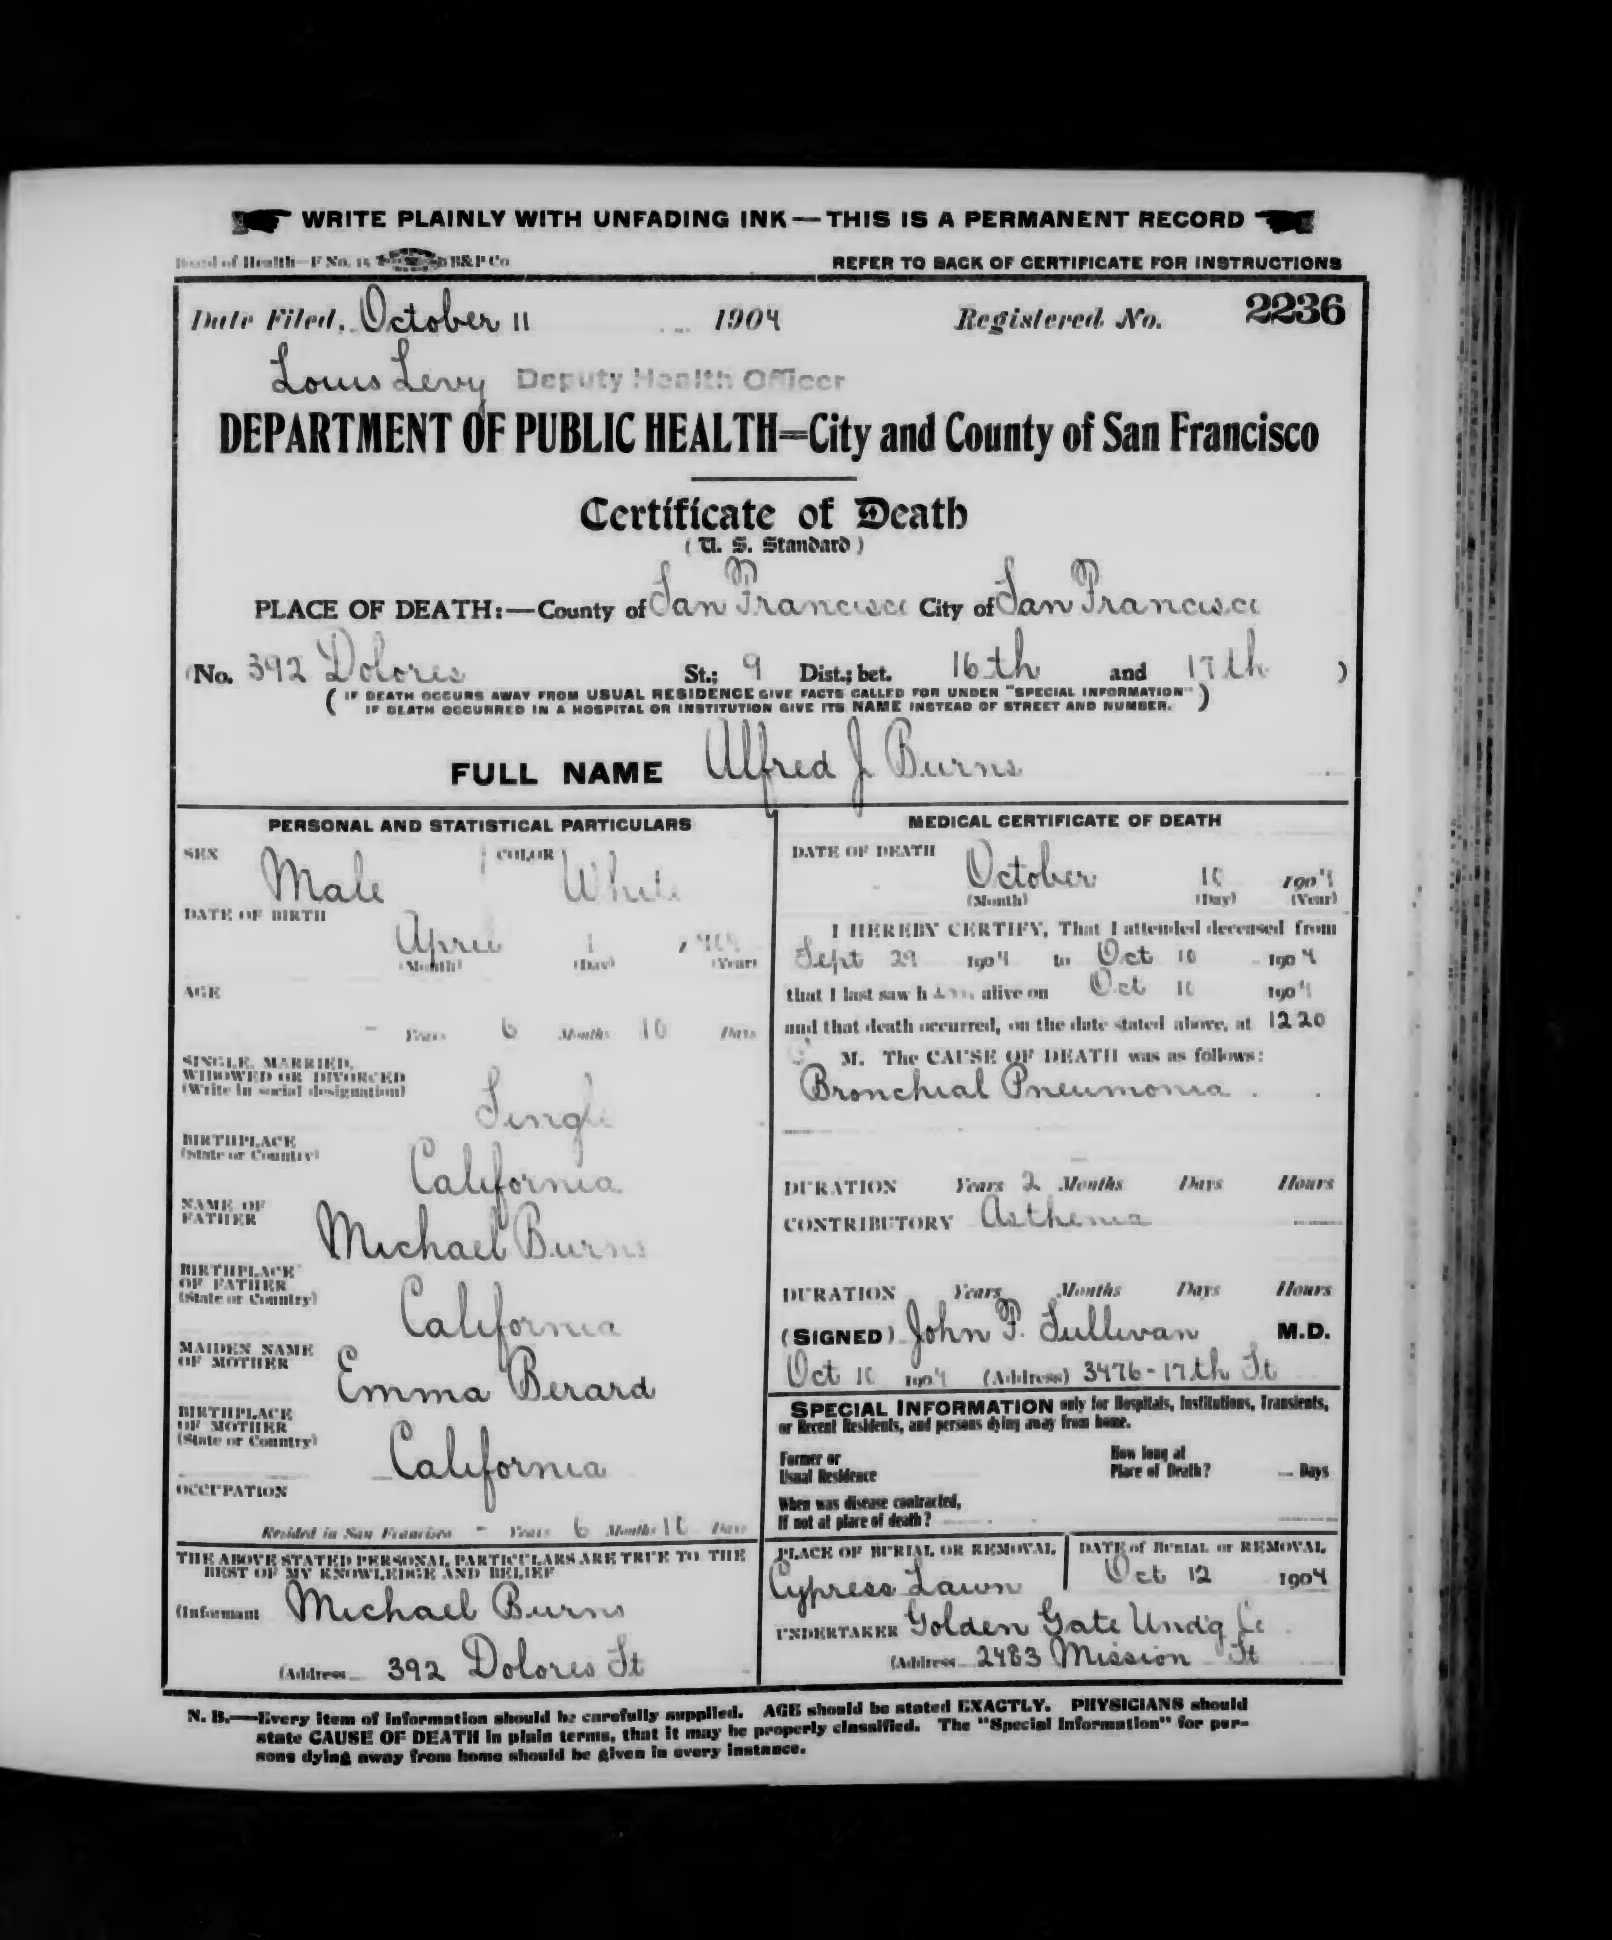 WRITE PLAINLY WITH UNFADING INK—THIS IS A PERMANENT RECORD
Board of Health—F No. 15 B&P Co
REFER TO BACK OF CERTIFICATE FOR INSTRUCTIONS
Date Filed, October 11 1904 Registered No. 2236
Louis Levy Deputy Health Officer
DEPARTMENT OF PUBLIC HEALTH=City and County of San Francisco
Certificate of Death
(U. S. Standard)
PLACE OF DEATH:—County of San Francisco City of San Francisco
(No. 392 Dolores St.; 9 Dist.; bet. 16th and 17th )
(IF DEATH OCCURS AWAY FROM USUAL RESIDENCE GIVE FACTS CALLED FOR UNDER "SPECIAL INFORMATION"
IF DEATH OCCURRED IN A HOSPITAL OR INSTITUTION GIVE ITS NAME INSTEAD OF STREET AND NUMBER.)
FULL NAME Alfred J Burns
PERSONAL AND STATISTICAL PARTICULARS
SEX Male COLOR White
DATE OF BIRTH
April 1 1904
(Month) (Day) (Year)
AGE
- Years 6 Months 10 Days
SINGLE, MARRIED,
WIDOWED OR DIVORCED
(Write in social designation)
Single
BIRTHPLACE
(State or Country)
California
NAME OF
FATHER
Michael Burns
BIRTHPLACE
OF FATHER
(State or Country)
California
MAIDEN NAME
OF MOTHER
Emma Berard
BIRTHPLACE
OF MOTHER
(State or Country)
California
OCCUPATION
Resided in San Francisco - Years 6 Months 10 Days
THE ABOVE STATED PERSONAL PARTICULARS ARE TRUE TO THE
BEST OF MY KNOWLEDGE AND BELIEF
(Informant Michael Burns
(Address 392 Dolores St
MEDICAL CERTIFICATE OF DEATH
DATE OF DEATH
October 10 1904
(Month) (Day) (Year)
I HEREBY CERTIFY, That I attended deceased from
Sept 29 1904 to Oct 10 1904
that I last saw him alive on Oct 10 1904
and that death occurred, on the date stated above, at 12 20
M. The CAUSE OF DEATH was as follows:
Bronchial Pneumonia
DURATION Years 2 Months Days Hours
CONTRIBUTORY Asthenia
DURATION Years Months Days Hours
(SIGNED) John F. Sullivan M.D.
Oct 10 1904 (Address) 3476-17th St
SPECIAL INFORMATION only for Hospitals, Institutions, Transients,
or Recent Residents, and persons dying away from home.
Former or
Usual Residence
How long at
Place of Death? Days
When was disease contracted,
If not at place of death?
PLACE OF BURIAL OR REMOVAL
Cypress Lawn
DATE of BURIAL or REMOVAL
Oct 12 1904
UNDERTAKER Golden Gate Und'g Co
(Address 2483 Mission St
N. B.—Every item of information should be carefully supplied. AGE should be stated EXACTLY. PHYSICIANS should
state CAUSE OF DEATH in plain terms, that it may be properly classified. The "Special Information" for per-
sons dying away from home should be given in every instance.